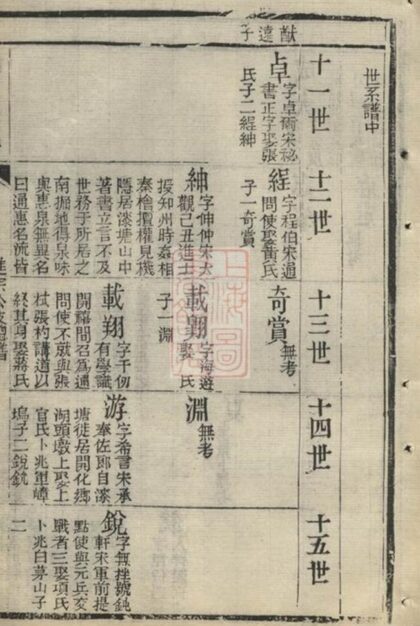 世系譜中
十一世
十二世
十三世
十四世
十五世
猷遠子
卓
字卓爾宋祕
書正字娶張
氏子二經紳
經
字程伯宋通
問使娶黃氏
子一奇賞
奇賞
無考
紳
字伸仲宋大
觀己丑進士
授知州時姦相
秦檜擅權見機
隱居漆塘山中
著書立言不及
世務于所居之
南掘地得泉味
與惠泉無異名
曰通惠名流皆
載翺
字海遊
娶 氏
子一淵
淵
無考
載翔
字千仞
有學識
開禧間召爲通
問使不就與張
栻張杓講道以
終其身娶蔣氏
游
字希書宋承
奉佐郎自漆
塘徙居開化鄉
湖頭墩上娶上
官氏卜兆軍嶂
塢子二銳
銳
字無挫號鈍
軒宋軍前提
點使與元兵交
戰者三娶項氏
卜兆白茅山子
二